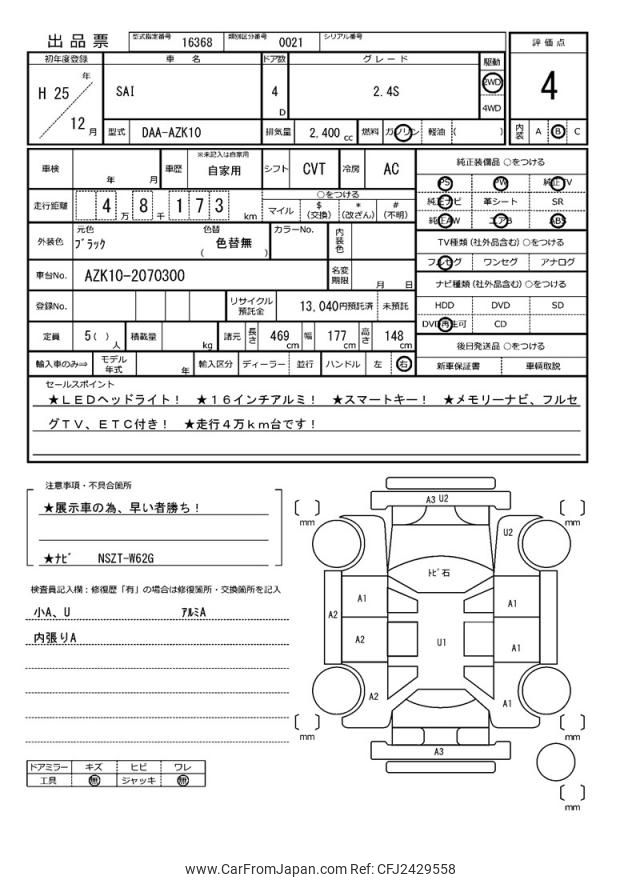 出品票 型式指定番号 16368 類別区分番号 0021 シリアル番号
評価点
4
内装 A B C
初年度登録 車名 ドア数 グレード 駆動
H 25 年 12 月 SAI 4 D 2.4S 2WD 4WD
型式 DAA-AZK10 排気量 2,400 cc 燃料 ガソリン 軽油 ( )
車検 年 月 車歴 ※未記入は自家用 自家用 シフト CVT 冷房 AC
走行距離 4 万 8 千 1 7 3 km ○をつける
マイル $ (交換) * (改ざん) # (不明)
外装色 元色 ブラック 色替 ( 色替無 ) カラーNo. 内装色
車台No. AZK10-2070300 名変期限 月 日
登録No. リサイクル預託金 13,040円預託済 未預託
定員 5( ) 人 積載量 kg 諸元 長さ 469 cm 幅 177 cm 高さ 148 cm
輸入車のみ⇒ モデル年式 年 輸入区分 ディーラー 並行 ハンドル 左 右
純正装備品 ○をつける
PS PW 純正TV
純正ナビ 革シート SR
純正AW エアB ABS
TV種類 (社外品含む) ○をつける
フルセグ ワンセグ アナログ
ナビ種類 (社外品含む) ○をつける
HDD DVD SD
DVD再生可 CD
後日発送品 ○をつける
新車保証書 車輌取説
セールスポイント
★LEDヘッドライト! ★16インチアルミ! ★スマートキー! ★メモリーナビ、フルセ
グTV、ETC付き! ★走行4万km台です!
注意事項・不具合箇所
★展示車の為、早い者勝ち!
★ナビ NSZT-W62G
検査員記入欄:修復歴「有」の場合は修復箇所・交換箇所を記入
小A、U アルミA
内張りA
ドアミラー キズ ヒビ ワレ
工具 無 ジャッキ 無
A3 U2
mm
mm
U2
トビ石
A1
A1
A2
A2
U1
A1
A2
A1
mm
mm
A3
mm
www.CarFromJapan.com Ref: CFJ2429558